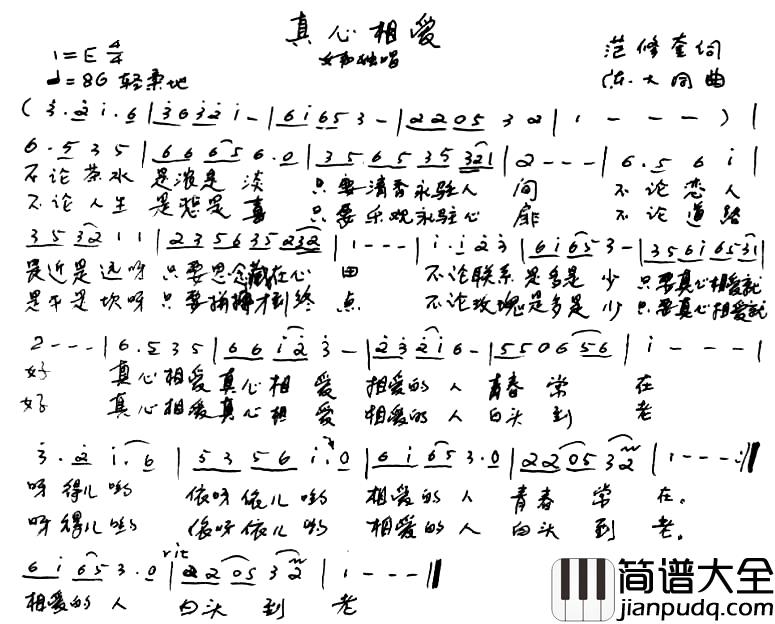 真心相爱
女声独唱
1=E 4/4
♩=86 轻柔地
范修奎词
陈大同曲
(3·2 1·6 | 3 6 3 2 1 - | 6 1 6 5 3 - | 2 2 0 5 3 2 | 1 - - - ) |
6·5 3 5 | 6 6 6 5 6·0 | 3 5 6 5 3 5 3 2 1 | 2 - - - | 6·5 6 1 |
不论茶水 是浓是 淡 只要清香永驻人 间 不论恋人
不论人生 是悲是 喜 只要乐观永驻心 扉 不论道路
3 5 3 2 1 1 | 2 3 5 6 3 5 2 3 2 | 1 - - - | 1·1 2 3 | 6 1 6 5 3 - | 3 5 6 1 6 5 3 1 |
是近是远呀 只要思念藏在心 田 不论联系是多是 少 只要真心相爱就
是平是坎呀 只要拼搏才到终 点 不论玫瑰是多是 少 只要真心相爱就
2 - - - | 6·5 3 5 | 6 6 1 2 3 - | 2 3 2 1 6 - | 5 5 0 6 5 6 | 1 - - - |
好 真心相爱真心相 爱 相爱的 人 青春 常 在
好 真心相爱真心相 爱 相爱的 人 白头 到 老
3·2 1·6 | 5 3 5 6 1·0 | 6 1 6 5 3·0 | 2 2 0 5 3 2 | 1 - - - :||
呀得儿哟 依呀依儿哟 相爱的 人 青春 常 在。
呀得儿哟 依呀依儿哟 相爱的 人 白头 到 老。
rit
6 1 6 5 3·0 | 2 2 0 5 3 2 | 1 - - - ||
相爱的 人 白头 到 老
简谱大全
jianpudq.com